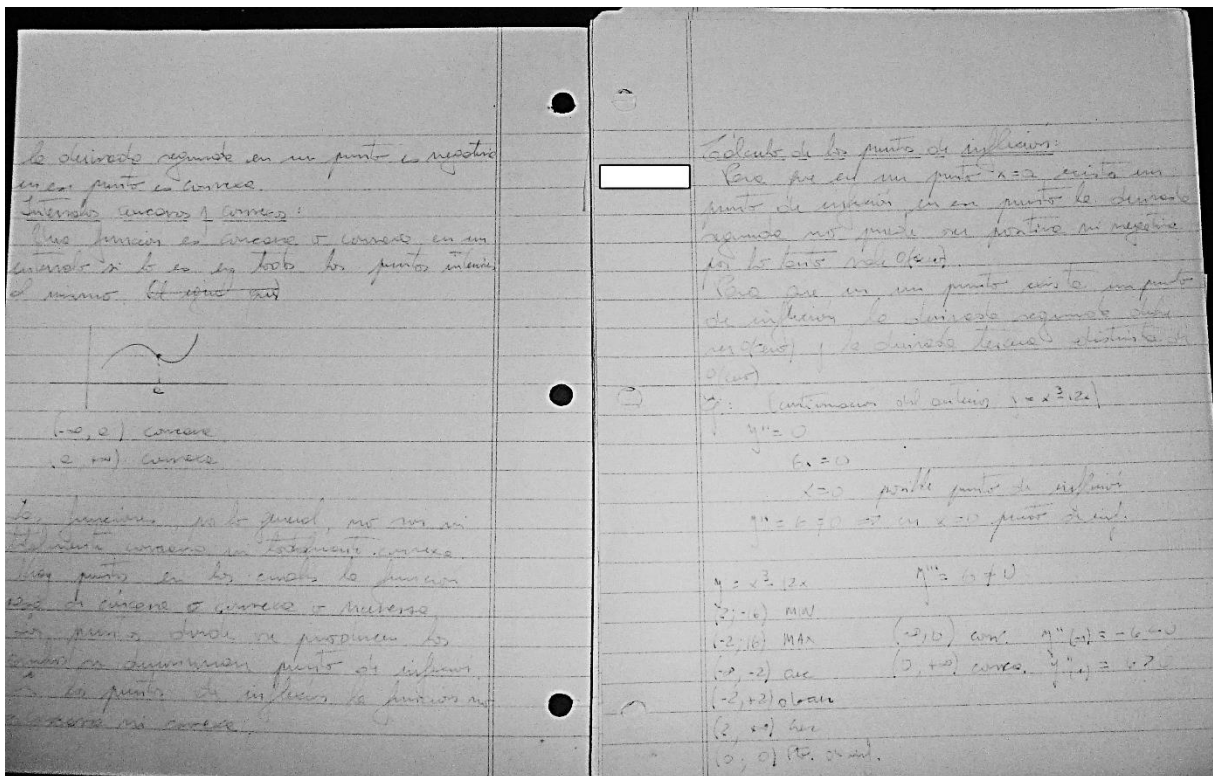 la derivada segunda en un punto es negativa
en ese punto es convexa.
Intervalos cóncavos y convexos:
Una función es cóncava o convexa en un
intervalo si lo es en todos los puntos interiores
al mismo.
a
(-∞, a) cóncava
(a, +∞) convexa
Las funciones, por lo general, no son ni
totalmente cóncava ni totalmente convexa.
Hay puntos en los cuales la función
pasa de cóncava a convexa o viceversa
Los puntos donde se producen los
cambios se denominan punto de inflexión.
En los puntos de inflexión la función no
es cóncava ni convexa.
Cálculo de los puntos de inflexión:
Para que en un punto x=a exista un
punto de inflexión, en ese punto la derivada
segunda no puede ser positiva ni negativa
por lo tanto vale 0(cero).
Para que en un punto exista un punto
de inflexión la derivada segunda debe
ser 0(cero) y la derivada tercera distinta de
0(cero)
Ej: (continuación del anterior y = x³-12x)
y'' = 0
6x = 0
x=0 posible punto de inflexión
y''' = 6 ≠ 0 => en x=0 punto de inf.
y = x³-12x y''' = 6 ≠ 0
(2;-16) MIN
(-2;16) MAX (-∞,0) conv. y''(-1) = -6 <0
(-∞,-2) crec (0,+∞) conca. y''(1) = 6 >0
(-2,+2) decrec
(2, +∞) crec
(0, 0) Pto. de inf.